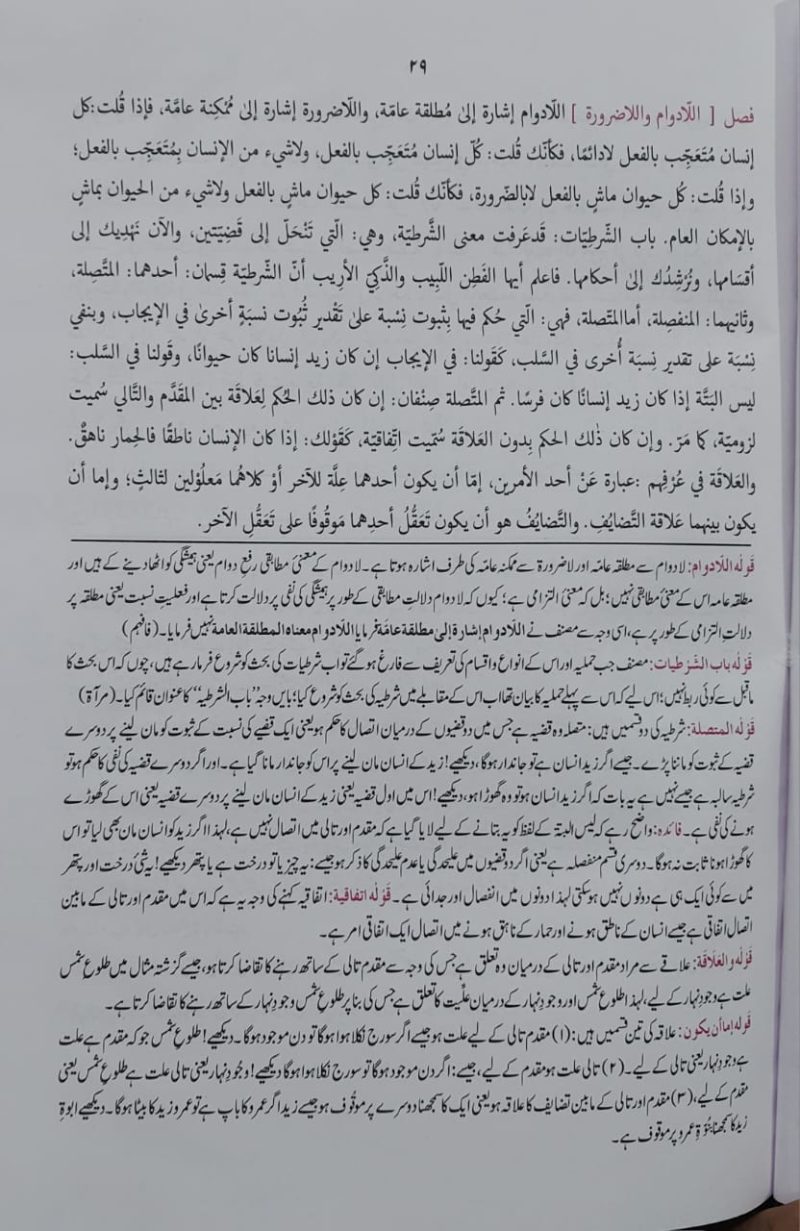 ٢٩
فصل [ اللّادوام واللاضرورة ] اللّادوام إشارة إلىٰ مُطلقة عامّة، واللّاضرورة إشارة إلىٰ مُمْكِنة عامَّة، فإذا قُلت: كل
إنسان مُتَعَجِّب بالفعل لادائمًا، فكأنّك قُلت: كُلّ إنسان مُتَعَجِّب بالفعل، ولاشيء من الإنسان بِمُتَعَجِّب بالفعل؛
وإذا قُلت: كُل حيوان ماشٍ بالفعل لابالضّرورة، فكأنّك قُلت: كل حيوان ماشٍ بالفعل ولاشيء من الحيوان بماشٍ
بالإمكان العام. باب الشّرطِيّات: قَدعَرفت معنى الشَّرطيّة، وهي: الّتي تَنْحَلّ إلى قَضِيّتين، والآن نَهْدِيك إلى
أقسَامها، ونُرْشِدُك إلىٰ أحكامِها. فاعلم أيها الفَطِن اللّبِيب والذَّكِيّ الأَرِيب أنّ الشّرطيّة قِسمان: أحدهما: المتَّصِلة،
وثانيهما: المنفصِلة، أماالمتّصلة، فهي: الّتي حُكم فيها بِثبوت نِسْبة علىٰ تَقْدير ثُبُوت نسبَةٍ أخرىٰ في الإيجاب، وبنفي
نِسْبَة على تقدير نِسبة أُخرى في السَّلب، كَقَولنا: في الإيجاب إن كان زيد إنسانا كان حيوانًا، وقَولنا في السَّلب:
ليس البَتَّة إذا كان زيد إنسانًا كان فرسًا. ثم المتَّصلة صِنْفان: إن كان ذلك الحُكم لِعَلاقَة بين المقَدَّم والتَّالي سُميت
لزوميّة، كما مَرّ. وإن كان ذٰلك الحكم بِدون العَلاقة سُمّيت اتِّفاقيّة، كَقَوْلك: إذا كان الإنسان ناطقًا فالحِمار ناهقٌ.
والعَلاقة في عُرْفِهِم :عبارة عَنْ أحد الأمرين، إمّا أن يكون أحدهما عِلَّة للآخر أوْ كلاهُما مَعلُوْلين لثالثٍ؛ وإما أن
يكون بينهما عَلاقة التَّضايُفِ. والتَّضايُفُ هو أن يكون تَعَقُّلُ أحدِهما مَوقُوفًا على تَعَقُّلِ الآخر.
قوله اللادوام: لادوام سے مطلقہ عامّہ اور لاضرورۃ سے ممکنہ عامّہ کی طرف اشارہ ہوتا ہے۔ لادوام کے معنی مطابقی رفعِ دوام یعنی ہمیشگی کو اٹھا دینے کے ہیں اور
مطلقہ عامہ اس کے معنی مطابقی نہیں؛ بل کہ معنی التزامی ہے؛ کیوں کہ لادوام دلالتِ مطابقی کے طور پر ہمیشگی کی نفی پر دلالت کرتا ہے اور فعلیتِ نسبت یعنی مطلقہ پر
دلالتِ التزامی کے طور پر ہے، اسی وجہ سے مصنف نے اللادوام إشارة إلی مطلقة عامّة فرمایا اللادوام معناہ المطلقة العامة نہیں فرمایا۔ (فافہم)
قوله باب الشرطيات: مصنف جب حملیہ اور اس کے انواع و اقسام کی تعریف سے فارغ ہو گئے تو اب شرطیات کی بحث کو شروع فرما رہے ہیں، چوں کہ اس بحث کا
ماقبل سے کوئی ربط نہیں؛ اس لیے کہ اس سے پہلے حملیہ کا بیان تھا اب اس کے مقابلے میں شرطیہ کی بحث کو شروع کیا؛ بایں وجہ ”باب الشرطیہ“ کا عنوان قائم کیا۔ (مرآۃ)
قوله المتصلة: شرطیہ کی دو قسمیں ہیں: متصلہ وہ قضیہ ہے جس میں دو قضیوں کے درمیان اتصال کا حکم ہو یعنی ایک قضیے کی نسبت کے ثبوت کو مان لینے پر دوسرے
قضیہ کے ثبوت کو ماننا پڑے۔ جیسے اگر زید انسان ہے تو جاندار ہوگا، دیکھیے! زید کے انسان مان لینے پر اس کو جاندار مانا گیا ہے۔ اور اگر دوسرے قضیہ کی نفی کا حکم ہو تو
شرطیہ سالبہ ہے جیسے نہیں ہے یہ بات کہ اگر زید انسان ہو تو وہ گھوڑا ہو، دیکھیے! اس میں اول قضیہ یعنی زید کے انسان مان لینے پر دوسرے قضیہ یعنی اس کے گھوڑے
ہونے کی نفی ہے۔ فائدہ: واضح رہے کہ لیس البتۃ کے لفظ کو یہ بتانے کے لیے لایا گیا ہے کہ مقدم اور تالی میں اتصال نہیں ہے، لہذا اگر زید کو انسان مان بھی لیا تو اس
کا گھوڑا ہونا ثابت نہ ہوگا۔ دوسری قسم منفصلہ ہے یعنی اگر دو قضیوں میں علیحدگی یا عدم علیحدگی کا ذکر ہو جیسے: یہ چیز یا تو درخت ہے یا پتھر دیکھیے! یہ شئ درخت اور پتھر
میں سے کوئی ایک ہی ہے دونوں نہیں ہو سکتی لہذا دونوں میں انفصال اور جدائی ہے۔ قوله اتفاقية: اتفاقیہ کہنے کی وجہ یہ ہے کہ اس میں مقدم اور تالی کے مابین
اتصال اتفاقی ہے جیسے انسان کے ناطق ہونے اور حمار کے ناہق ہونے میں اتصال ایک اتفاقی امر ہے۔
قوله والعلاقة: علاقے سے مراد مقدم اور تالی کے درمیان وہ تعلق ہے جس کی وجہ سے مقدم تالی کے ساتھ رہنے کا تقاضا کرتا ہو، جیسے گزشتہ مثال میں طلوع شمس
علت ہے وجودِ نہار کے لیے، لہذا طلوعِ شمس اور وجودِ نہار کے درمیان علّیت کا تعلق ہے جس کی بنا پر طلوعِ شمس وجودِ نہار کے ساتھ رہنے کا تقاضا کرتا ہے۔
قوله إما أن يكون: علاقہ کی تین قسمیں ہیں: (۱) مقدم تالی کے لیے علت ہو جیسے اگر سورج نکلا ہوا ہوگا تو دن موجود ہوگا۔ دیکھیے! طلوعِ شمس جو کہ مقدم ہے علت
ہے وجودِ نہار یعنی تالی کے لیے۔ (۲) تالی علت ہو مقدم کے لیے، جیسے: اگر دن موجود ہوگا تو سورج نکلا ہوا ہوگا دیکھیے! وجُودِ نہار یعنی تالی علت ہے طلوعِ شمس یعنی
مقدم کے لیے، (۳) مقدم اور تالی کے مابین تضایف کا علاقہ ہو یعنی ایک کا سمجھنا دوسرے پر موقُوف ہو جیسے زید اگر عمرو کا باپ ہے تو عمرو زید کا بیٹا ہوگا۔ دیکھیے ابوۃِ
زید کا سمجھنا بنُوّۃِ عمرو پر موقوف ہے۔